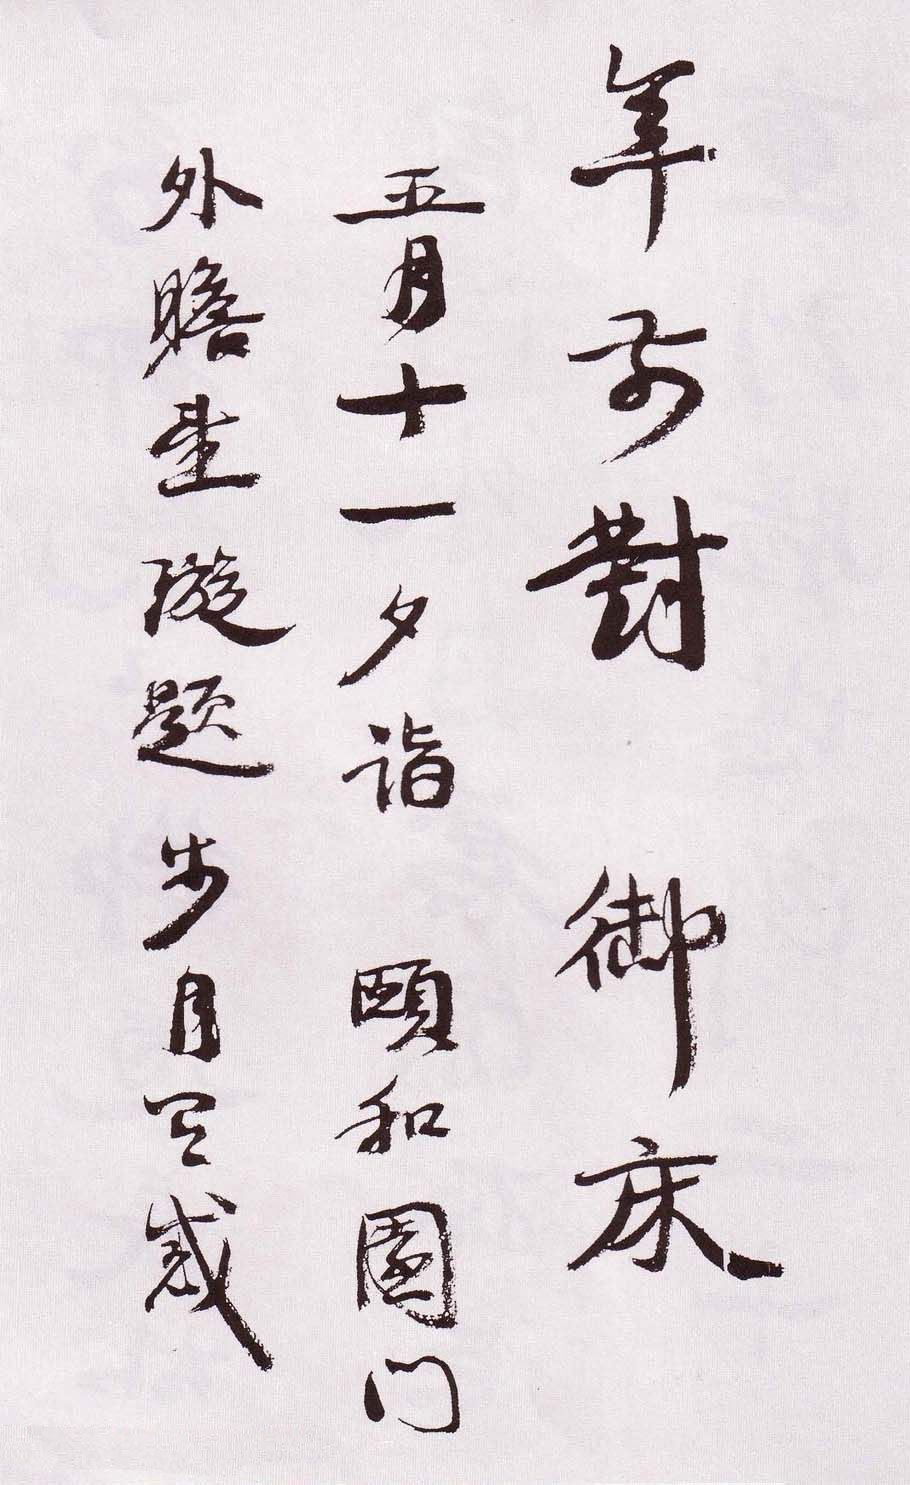 年前對御床
五月十一夕詣頤和園門
外瞻望璇題步月感